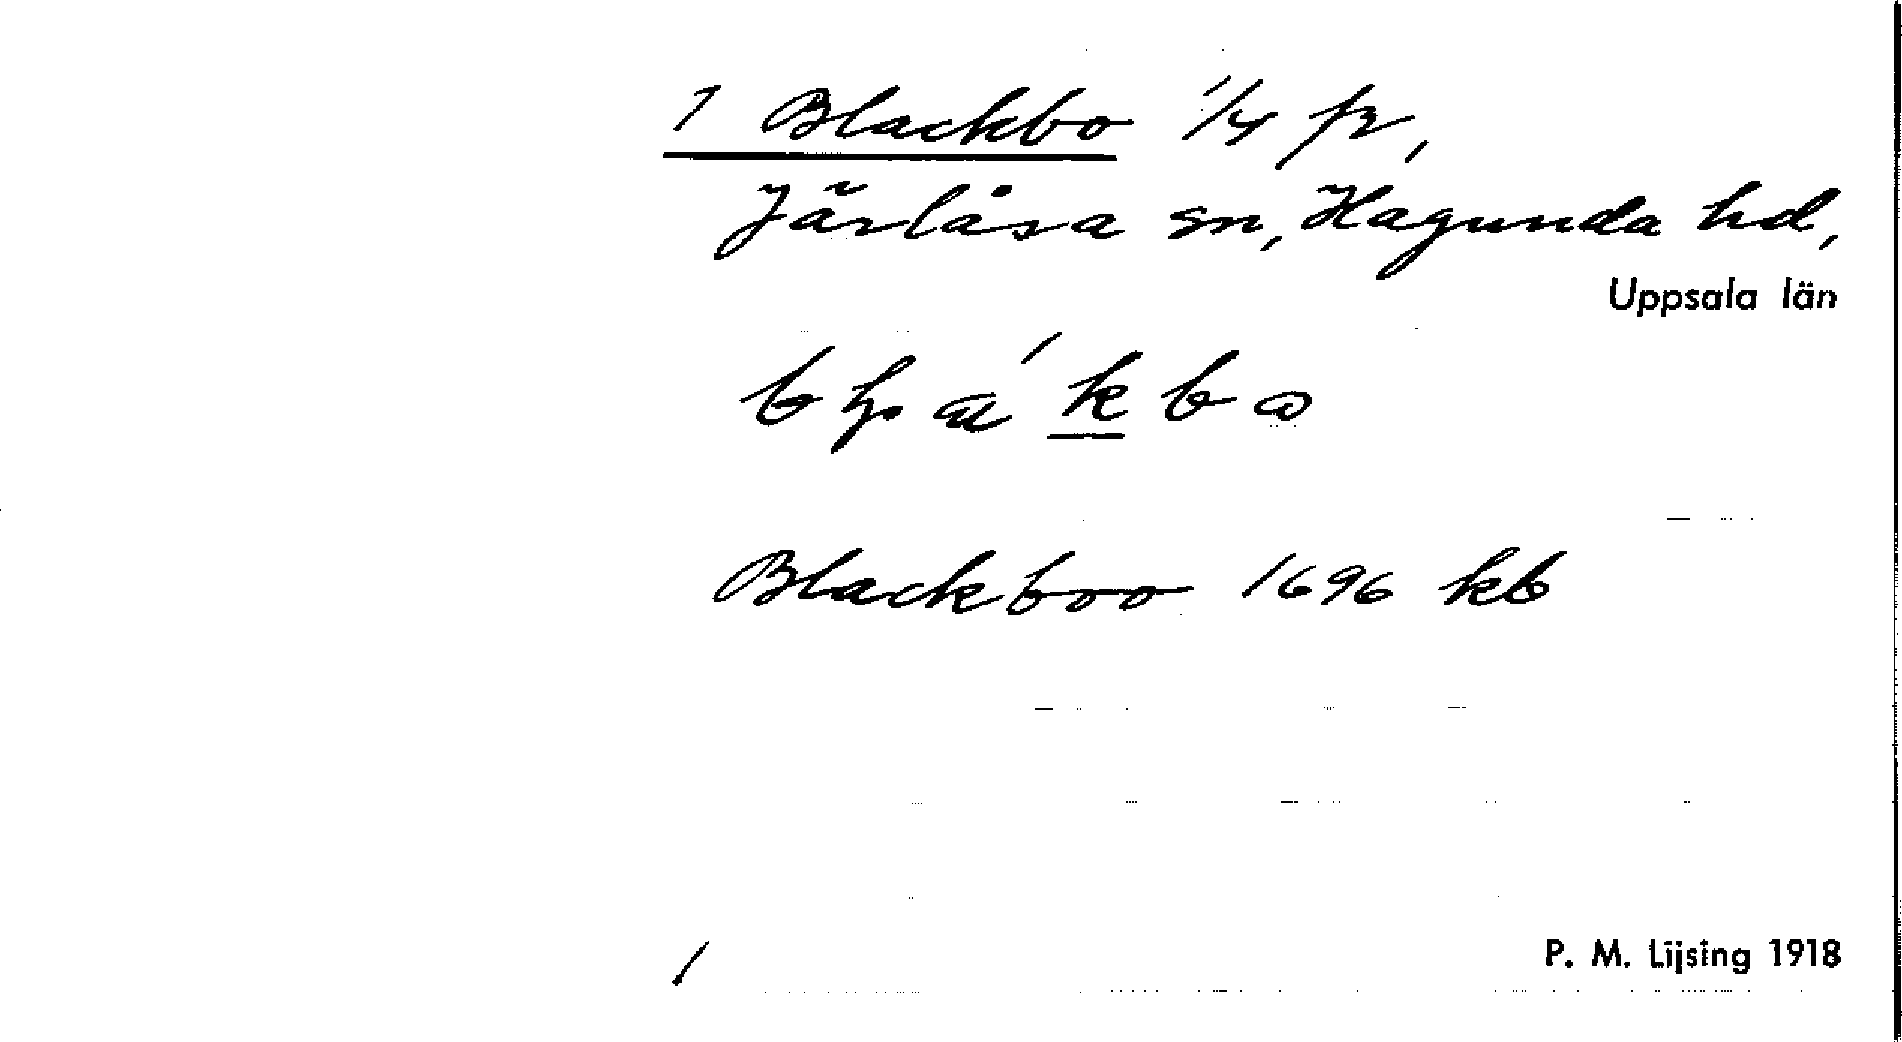 1 Blackbo 1/4 fr,
Järlåsa sn, Hagunda hd,
Uppsala län
Blackboo 1696 kb
1
P. M. Lijsing 1918